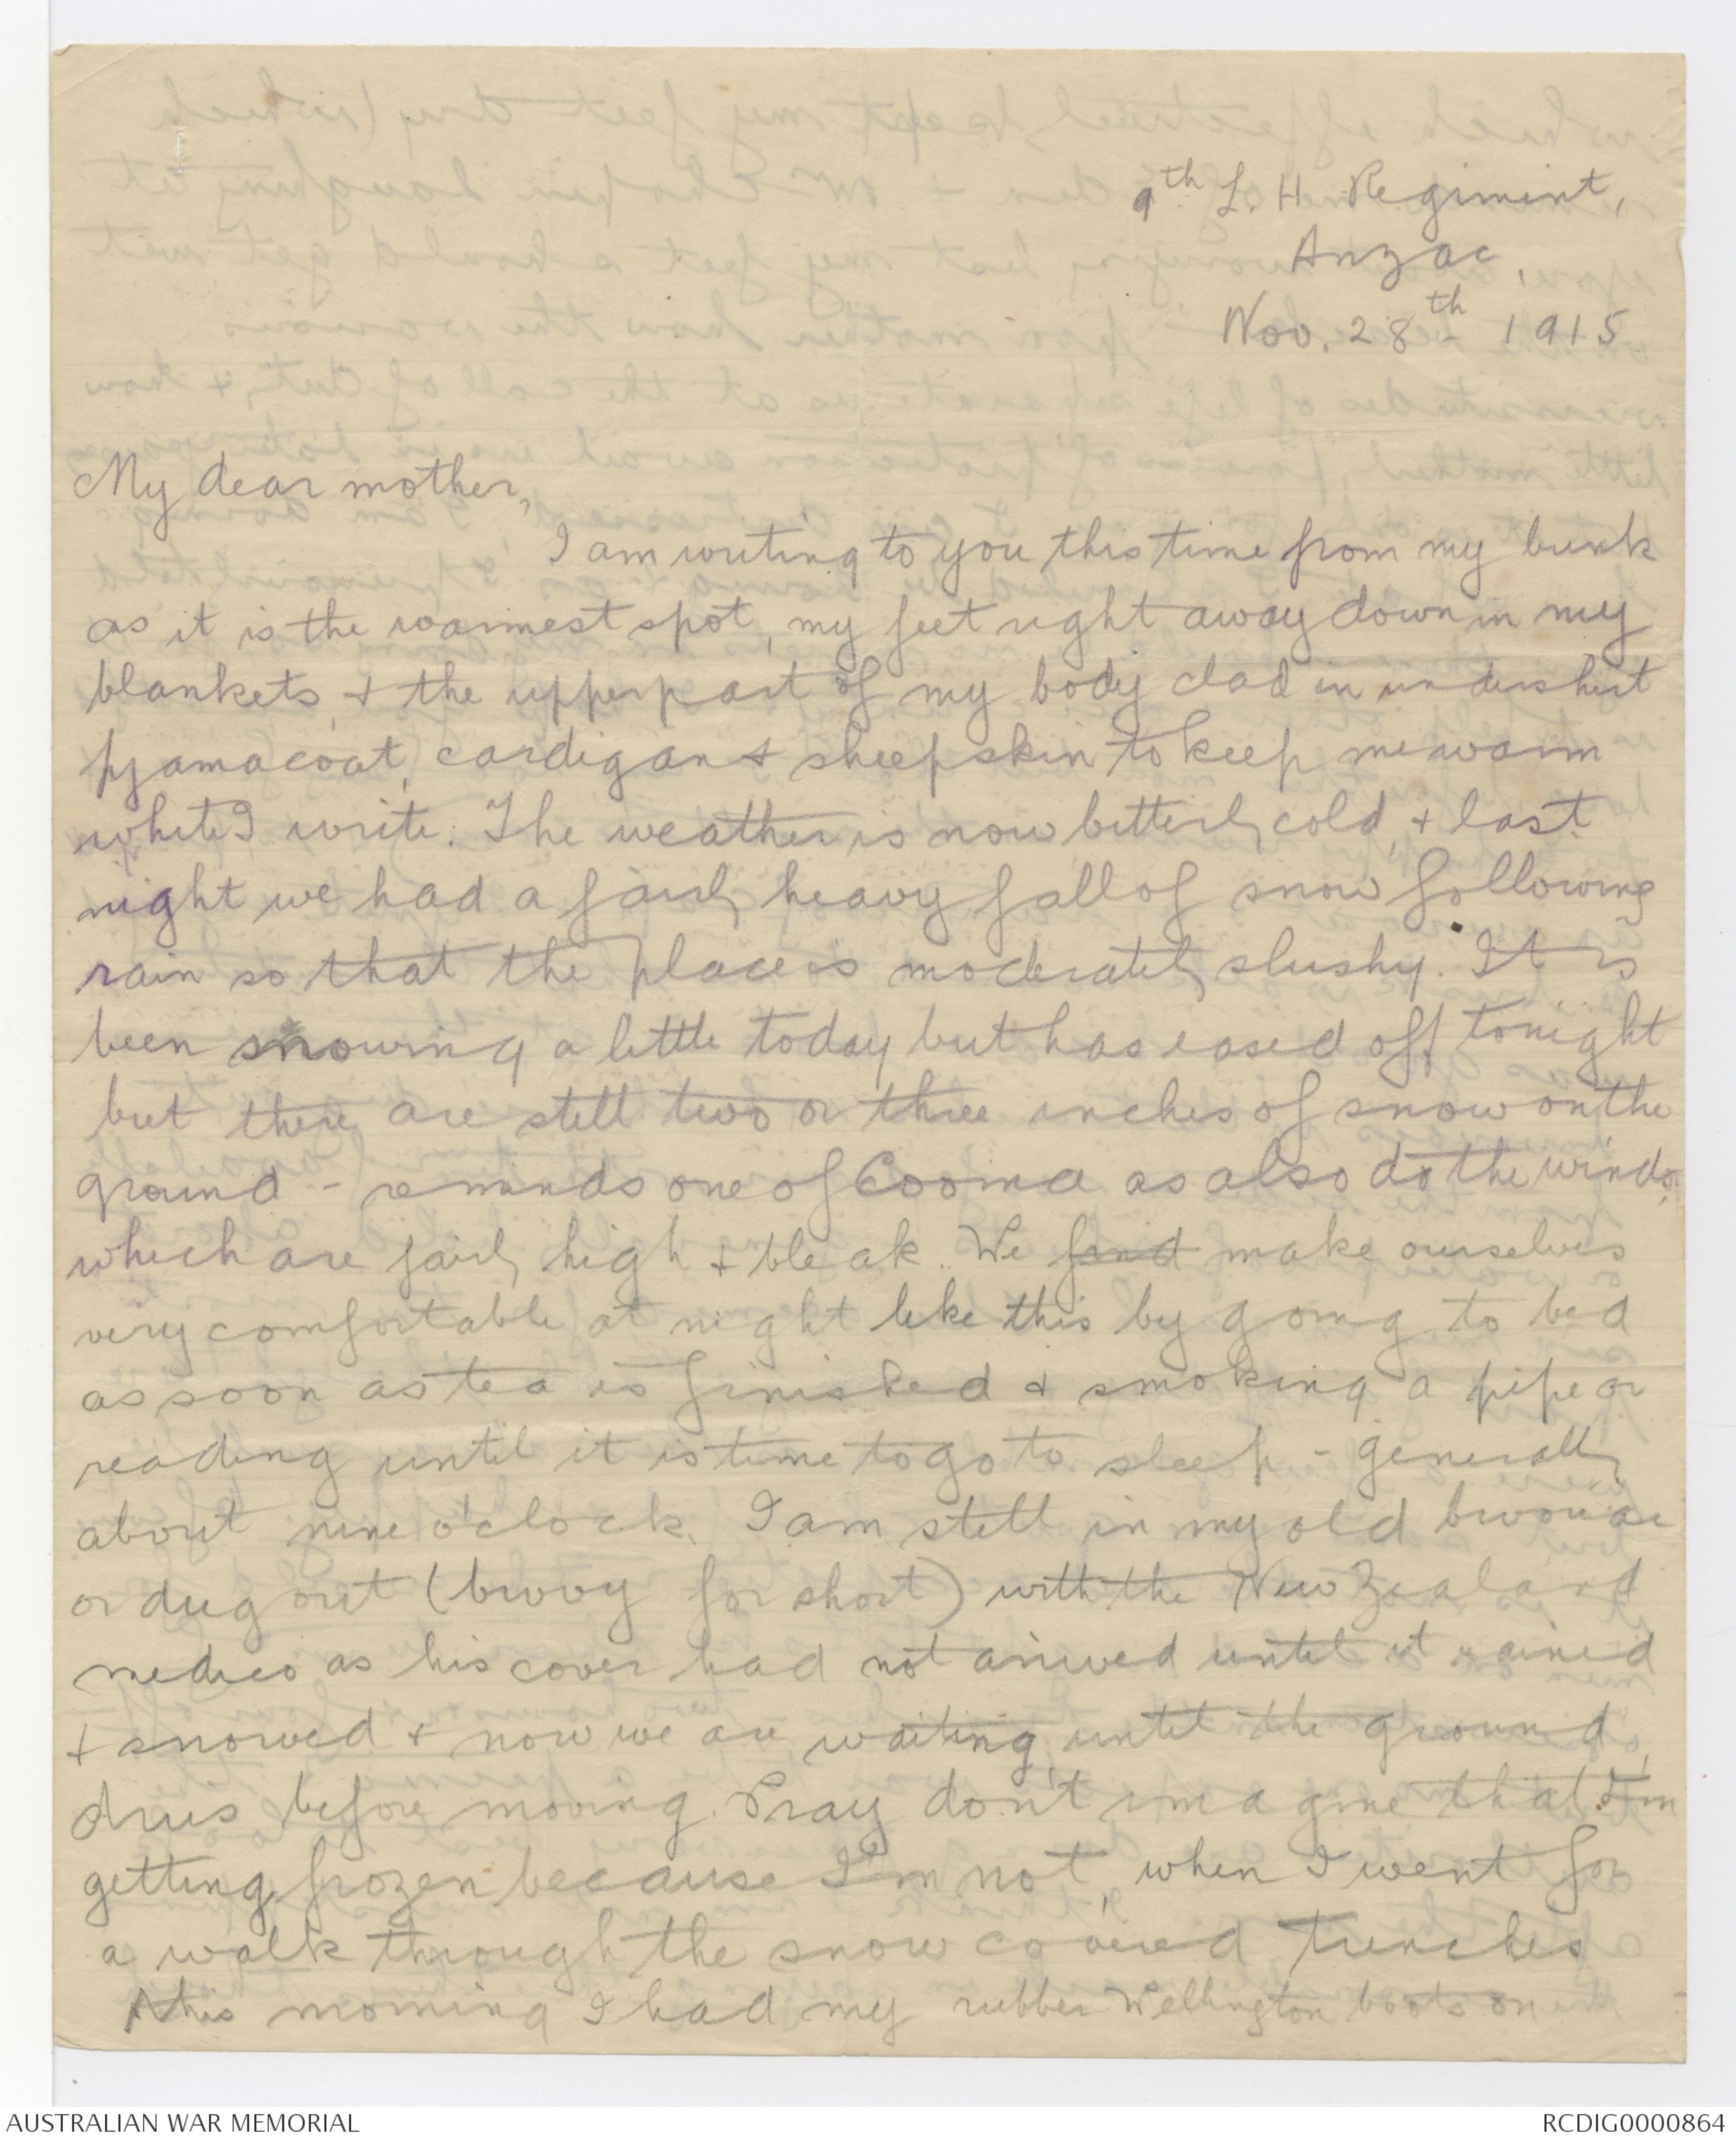 9th L. H. Regiment,
Anzac,
Nov. 28th 1915
My dear mother,
I am writing to you this time from my bunk
as it is the warmest spot, my feet right away down in my
blankets, & the upper part of my body clad in undershirt
pyjama coat, cardigan & sheepskin to keep me warm
while I write. The weather is now bitterly cold, & last
night we had a fairly heavy fall of snow following
rain so that the place is moderately slushy. It is
been snowing a little today but has eased off tonight
but there are still two or three inches of snow on the
ground - reminds one of Cooma as also do the winds,
which are fairly high & bleak. We find make ourselves
very comfortable at night like this by going to bed
as soon as tea is finished & smoking a pipe or
reading until it is time to go to sleep - generally
about nine o'clock. I am still in my old bivouac
or dug out (bivvy for short) with the New Zealand
medico as his cover had not arrived until it rained
& snowed & now we are waiting until the ground
dries before moving. Pray don't imagine that I'm
getting frozen because I'm not, when I went for
a walk through the snow covered trenches
this morning I had my rubber Wellington boots on
AUSTRALIAN WAR MEMORIAL
RCDIG0000864